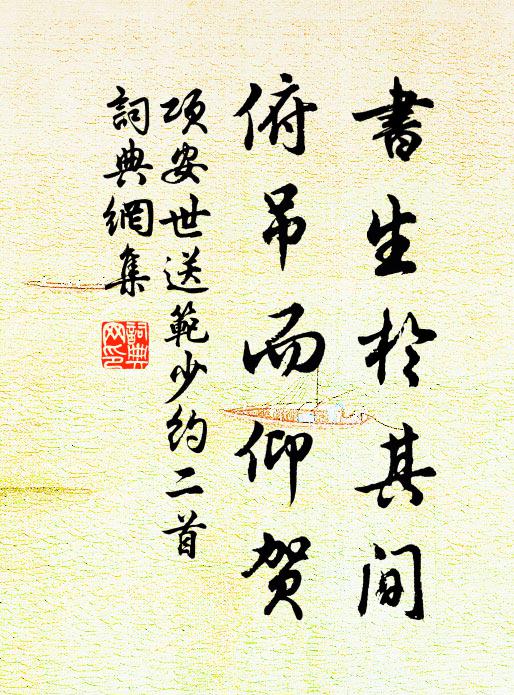 書生於其間
俯吊而仰贺
项安世送範少约二首
詞典網集
詞典
网印